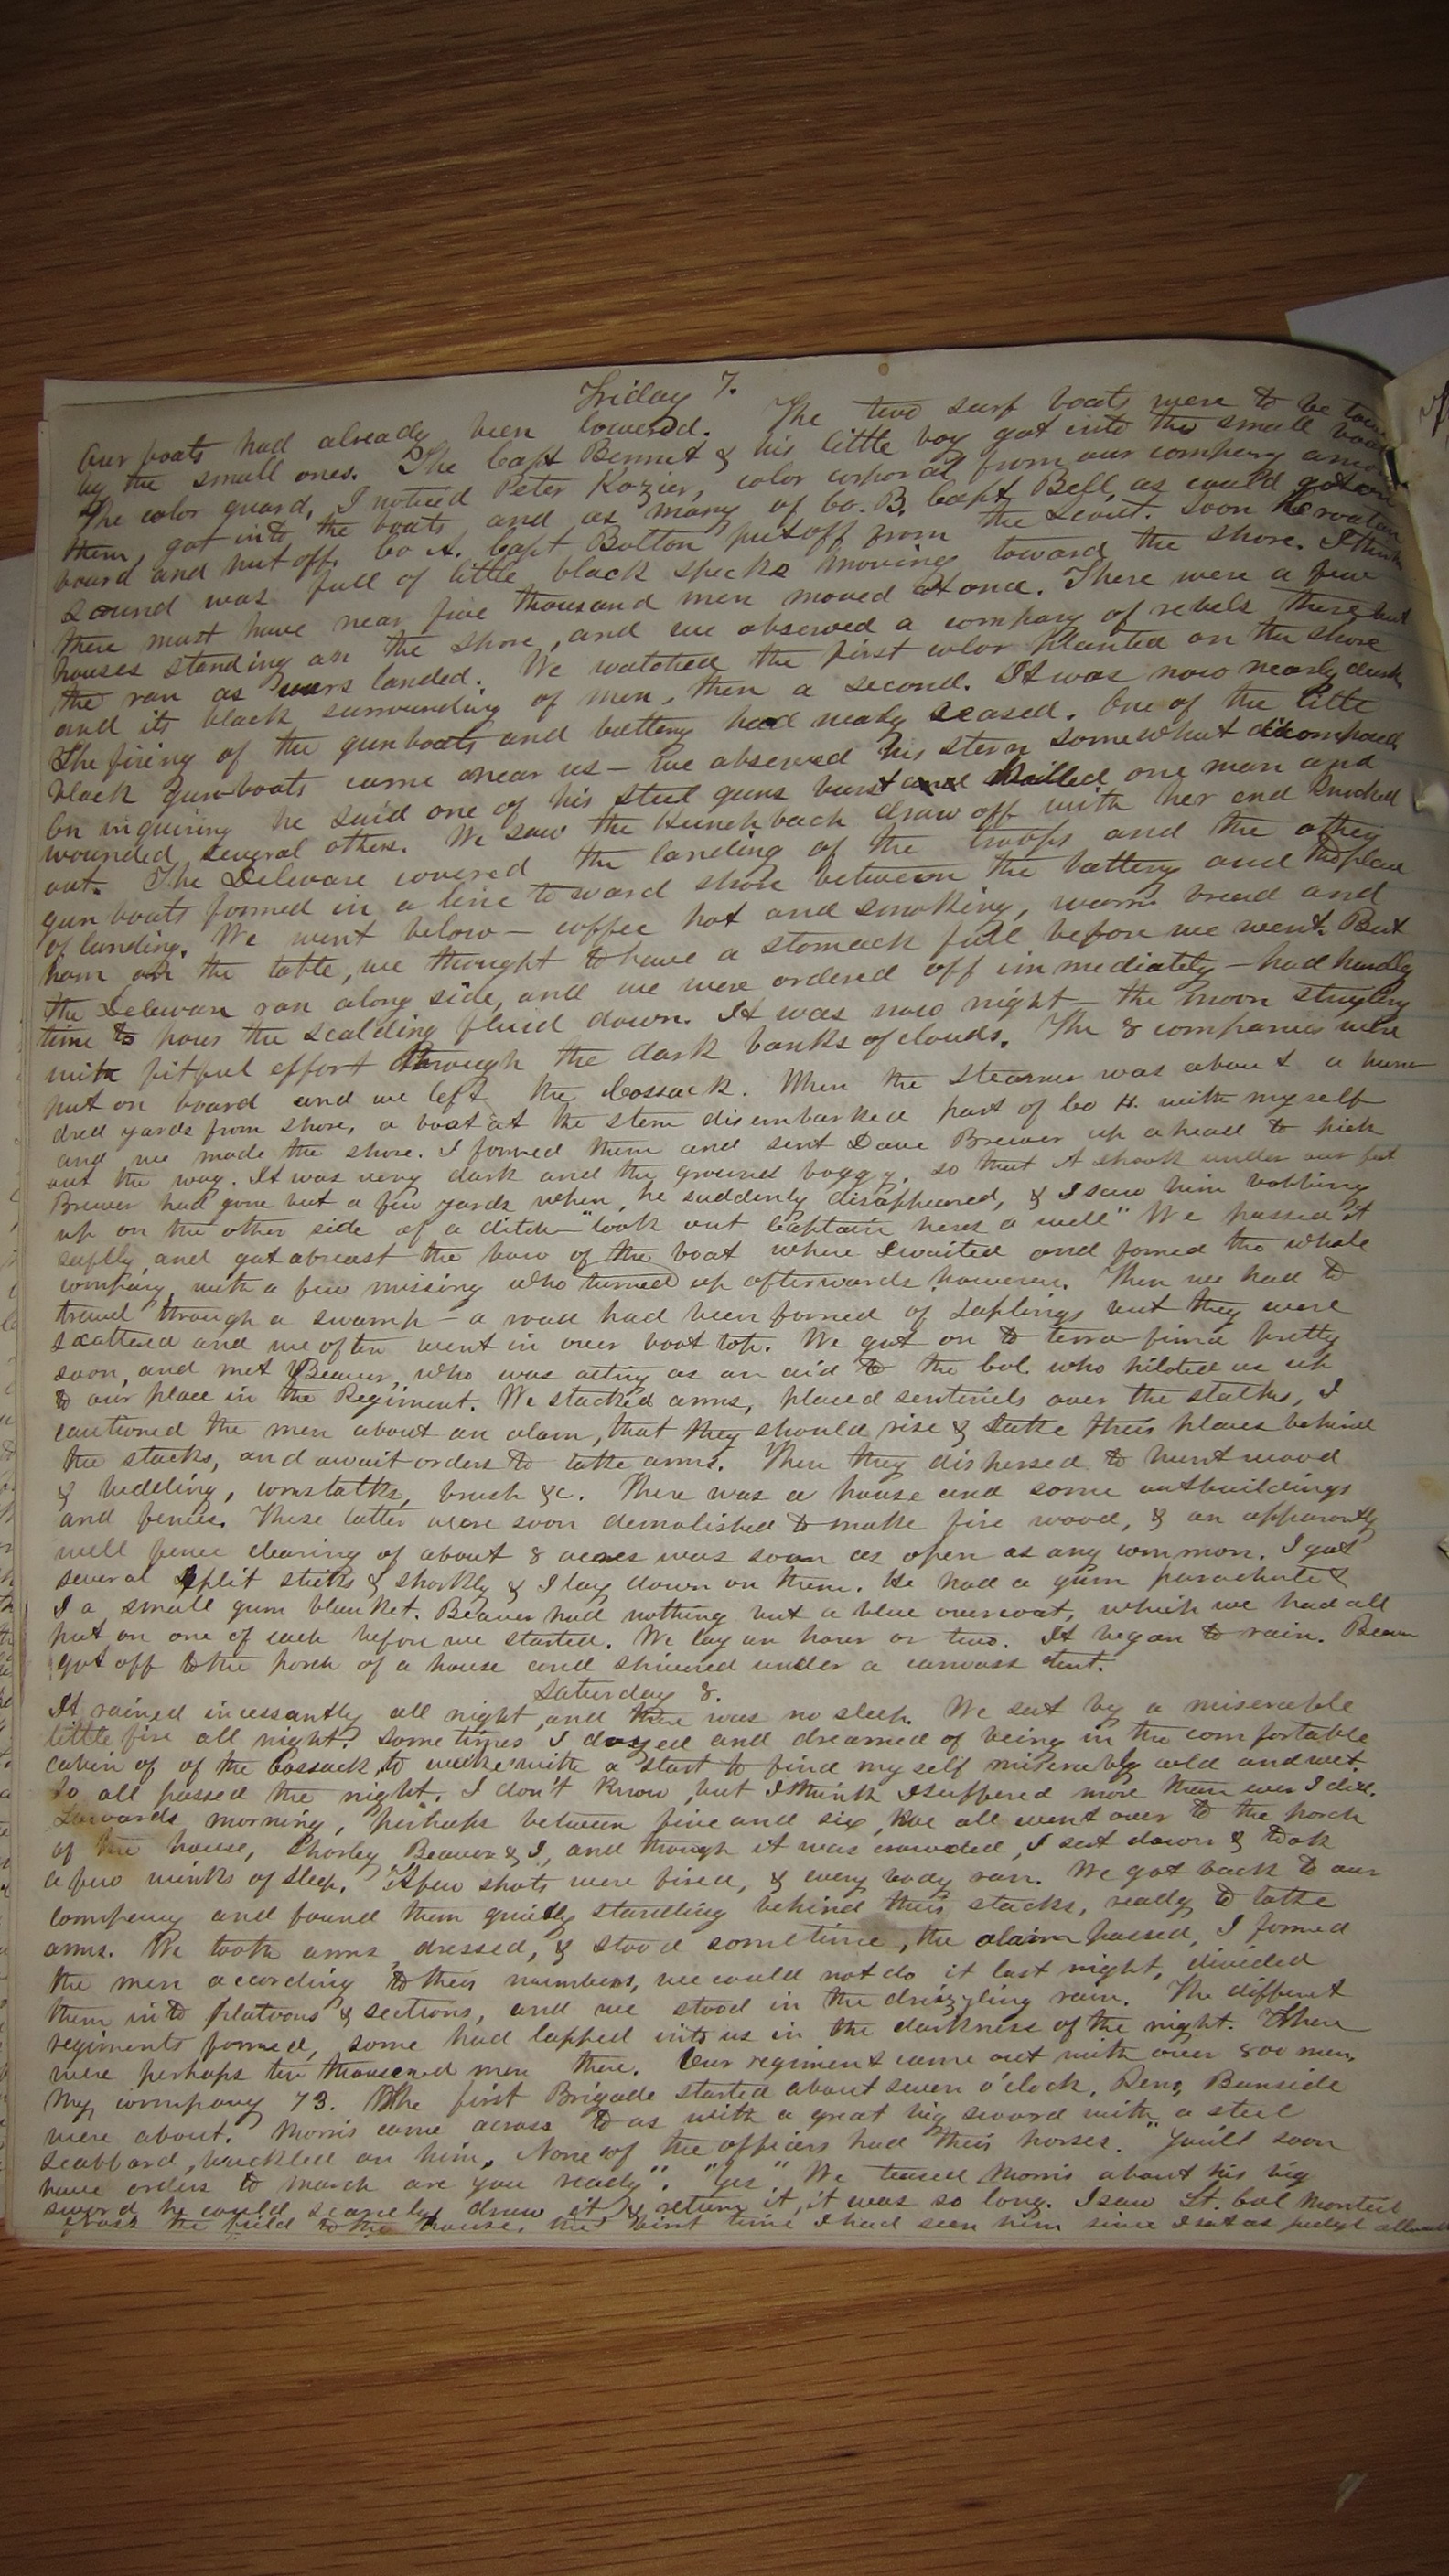 Friday 7.
Our boats had already been lowered. The two surf boats were to be tow
by the small ones. The Capt Bennet & his little boy got into the small boat
The color guard, I noticed Peter Kozier, color corporal from our company among
them, got into the boats and as many of Co. B. Capt Bell, as could get on
board and put off. Co A. Capt Bolton put off from the Scout. Soon the roatan
sound was full of little black specks moving toward the shore. I think
there must have near five thousand men moved at once. There were a few
houses standing on the shore, and we observed a company of rebels there but
the ran as ours landed. We watched the first color planted on the shore
and its black surrounding of men, then a second. It was now nearly dusk
The firing of the gunboats and battery had nearly ceased. One of the little
black gun-boats came near us — we observed his stern somewhat discomposed
On inquiring he said one of his steel guns burst and killed one man and
wounded several others. We saw the Hunchback draw off with her end knocked
out. The Deleware covered the landing of the troops and the other
gun boats formed in a line toward shore between the battery and the place
of landing. We went below — coffee hot and smoking, warm bread and
ham on the table, we thought to have a stomach full before we went. But
the Delewar ran along side, and we were ordered off immediately — had hardly
time to pour the scalding fluid down. It was now night — the moon
with fitful effort through the dark banks of clouds. The 8 companies were
put on board and we left the Cossack. When the steamer was about a hun-
dred yards from shore, a boat at the stern disembarked part of Co H. with myself
and we made the shore. I formed them and sent Dave Brewer up ahead to pick
out the way. It was very dark and the ground boggy, so that it shook under our feet
Brewer had gone but a few yards when, he suddenly disappeared, & I saw him bobbing
up on the other side of a ditch — "look out Captain heres a well" We passed it
safly and got abreast the bow of the boat where I waited and formed the whole
company, with a few missing who turned up afterwards however. Then we had to
travel through a swamp — a road had been formed of saplings but they were
scattered and we often went in over boot top. We got on to terra-firma pretty
soon, and met Beaver, who was acting as an aid to the Col. who piloted us up
to our place in the Regiment. We stacked arms, placed sentinels over the stacks, I
cautioned the men about an alarm, that they should rise & take their places behind
the stacks, and await orders to take arms. Then they dispersed to hunt wood
& bedding, cornstalks, brush &c. There was a house and some outbuildings
and fences. These latter were soon demolished to make fire wood, & an apparently
well fence clearing of about 8 acres was soon as open as any common. I got
several split sticks & Shorkly & I lay down on them. He had a gum parachute &
I a small gum blanket. Beaver had nothing but a blue overcoat, which we had all
put on one of each before we started. We lay an hour or two. It began to rain. Beaver
got off to the porch of a house and shivered under a canvass tent.
Saturday 8.
It rained incessantly all night, and there was no sleep. We sat by a miserable
little fire all night. Some times I dozed and dreamed of being in the comfortable
cabin of of the Cossack, to wake with a start to find myself miserably cold and wet.
So all passed the night. I don't know, but I think I suffered more than ever I did.
Towards morning, perhaps between five and six, we all went over to the porch
of the house, Shorley Beaver & I, and though it was crowded, I sat down & took
a few winks of sleep. A few shots were fired, & every body ran. We got back to our
company and found them quietly standing behind their stacks, ready to take
arms. We took arms, dressed, & stood sometime, the alarm passed, I formed
the men according to their numbers, we could not do it last night, divided
them into platoons & sections, and we stood in the drizzling rain. The different
regiments formed, some had lapped into us in the darkness of the night. There
were perhaps ten thousand men there. Our regiment came out with over 800 men,
my company 73. The first Brigade started about seven o'clock. Reno, Burnside
were about. Morris came across to us with a great big sword with a steel
scabbard, buckled on him. None of the officers had their horses. "You'll soon
have orders to march are you ready". "Yes". We teased Morris about his big
sword he could scarcely draw it, & return it, it was so long. I saw Lt. Col Monteil
cross the field to the house, the first time I had seen him since I sat as